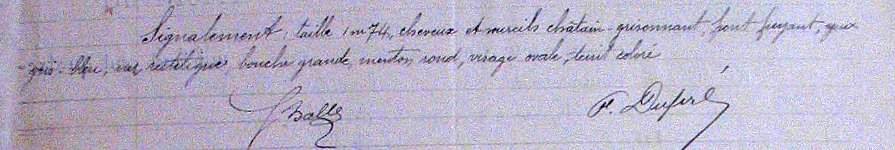 Signalement : taille 1m74, cheveux et sourcils châtain-grisonnant, front fuyant, yeux
gris-bleu, nez rectiligne, bouche grande, menton rond, visage ovale, teint coloré
F. Dupré